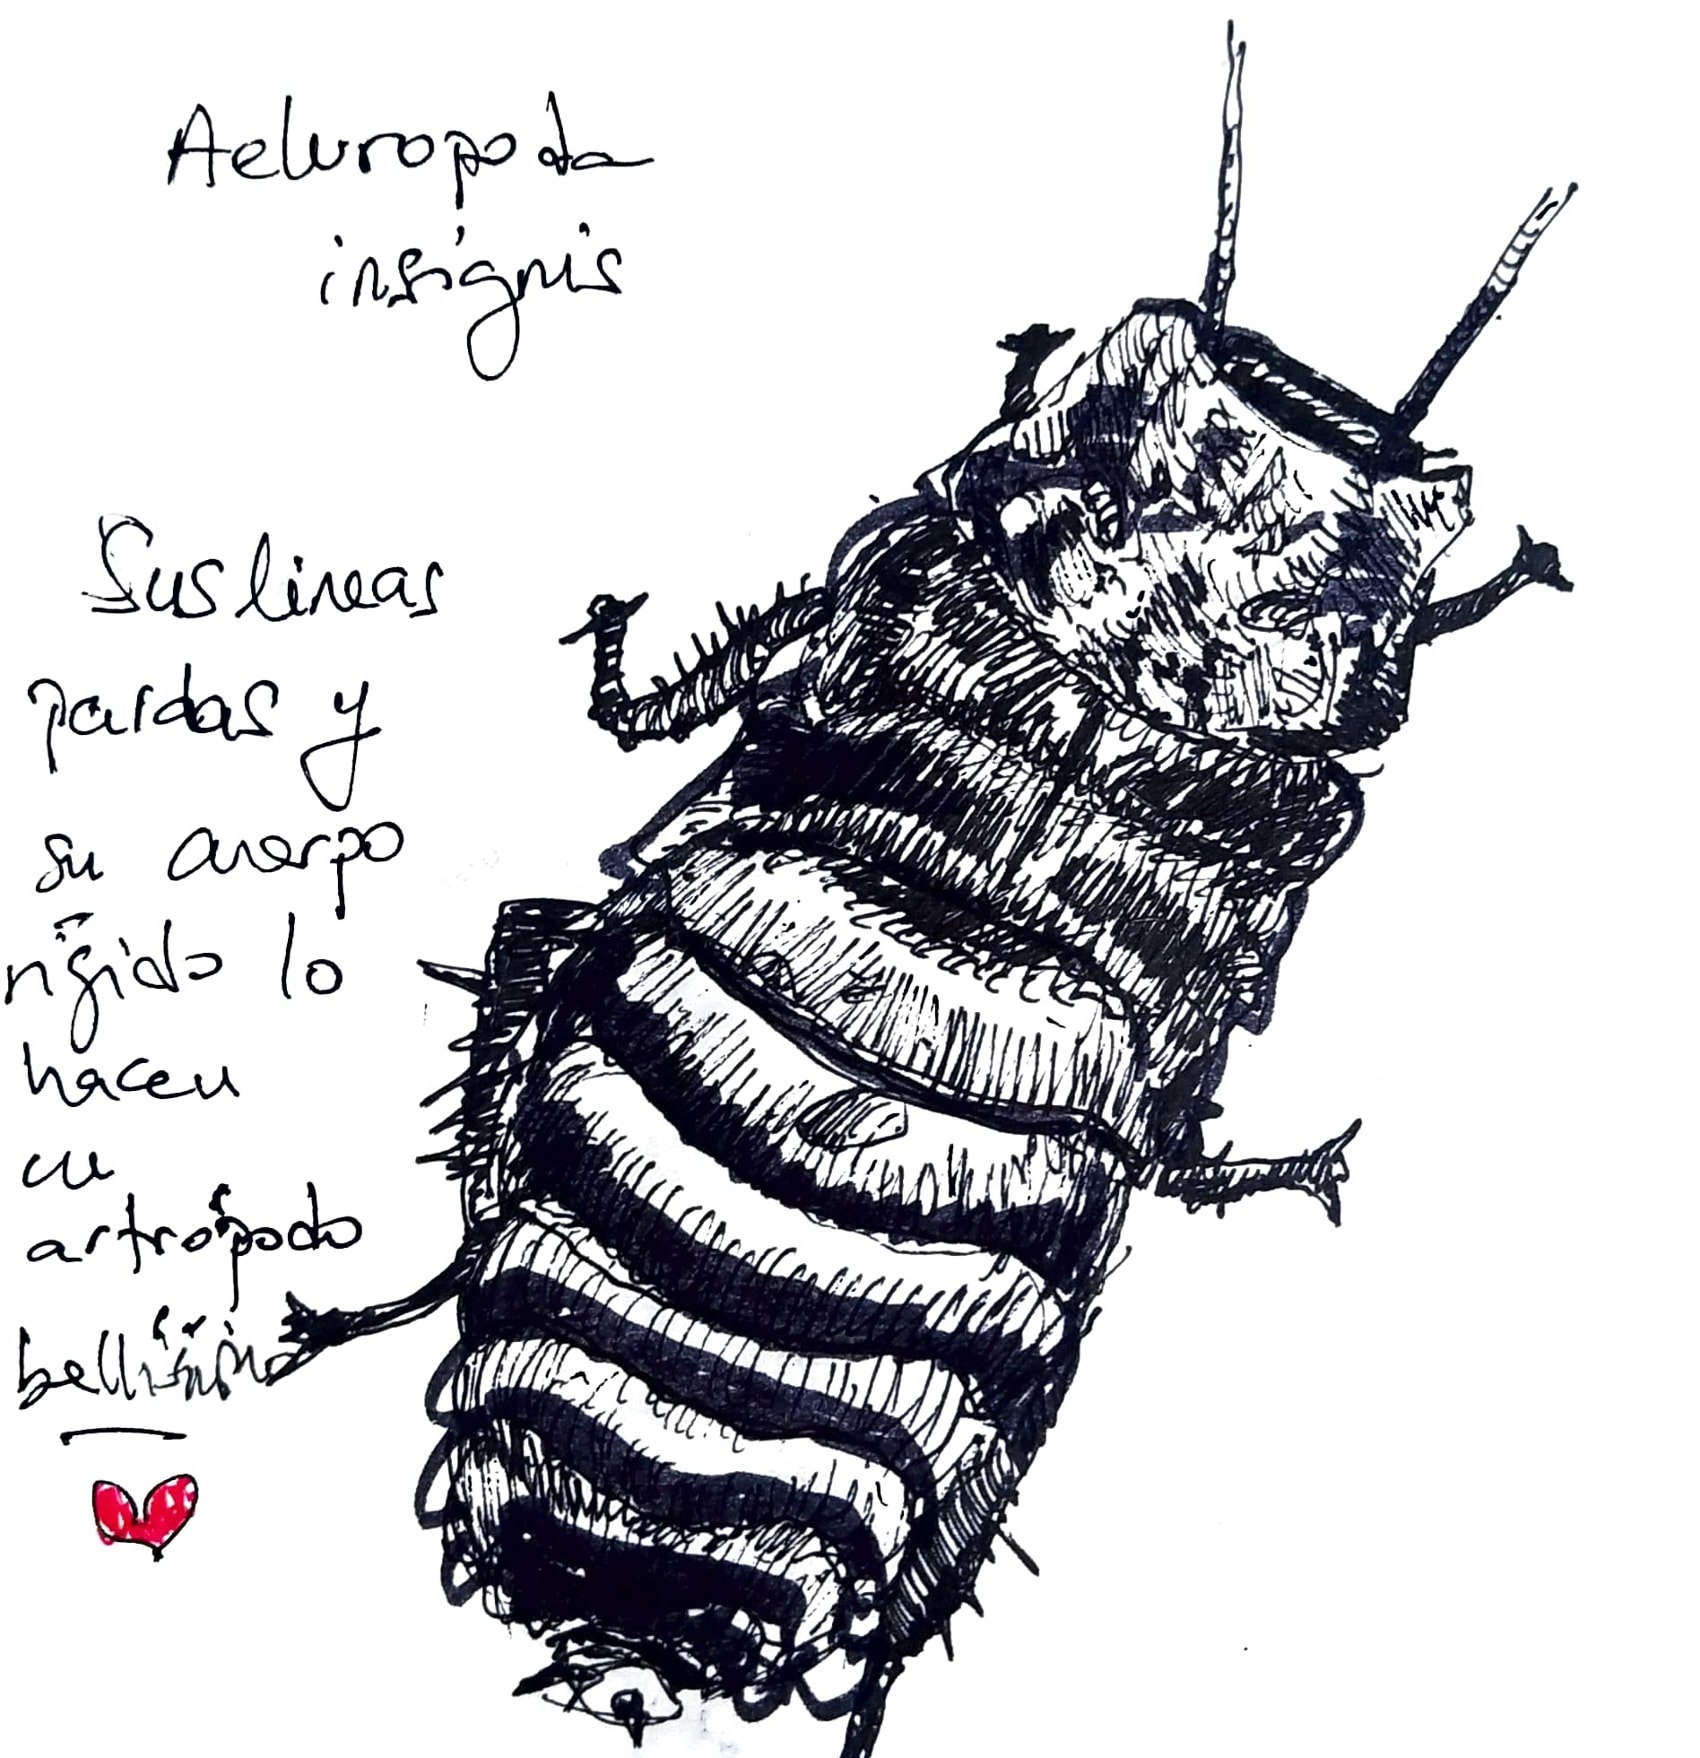 Aeluropoda
insignis
Sus lineas
pardas y
su cuerpo
rígido lo
hacen
un
artrópodo
bellísimo